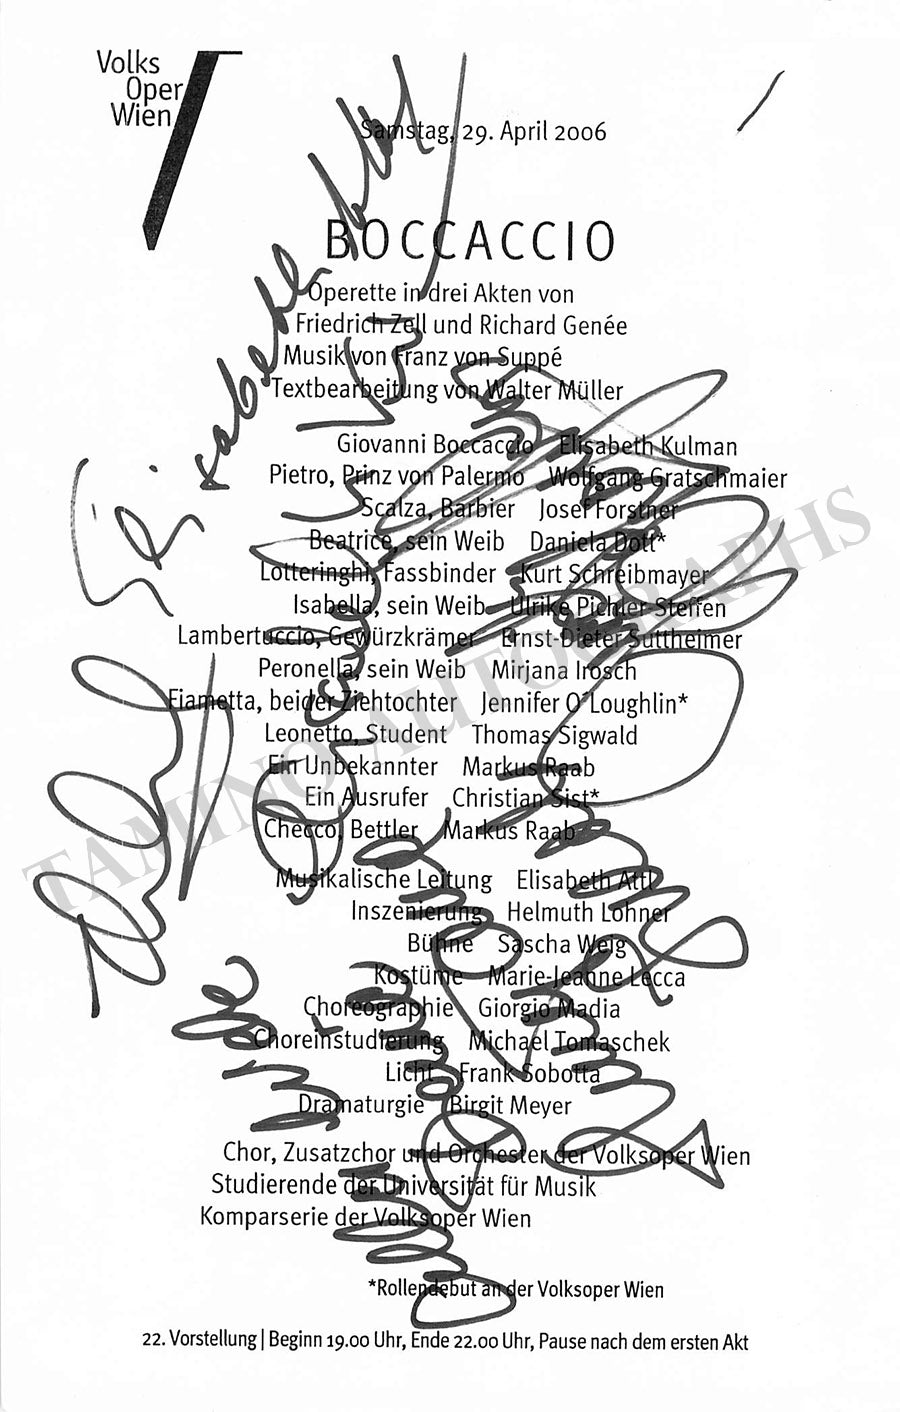 Volks
Oper
Wien
Samstag, 29. April 2006
BOCCACCIO
Operette in drei Akten von
Friedrich Zell und Richard Genée
Musik von Franz von Suppé
Textbearbeitung von Walter Müller
Giovanni Boccaccio Elisabeth Kulman
Pietro, Prinz von Palermo Wolfgang Gratschmaier
Scalza, Barbier Josef Forstner
Beatrice, sein Weib Daniela Dott*
Lotteringhi, Fassbinder Kurt Schreibmayer
Isabella, sein Weib Ulrike Pichler-Steffen
Lambertuccio, Gewürzkrämer Ernst-Dieter Suttheimer
Peronella, sein Weib Mirjana Irosch
Fiametta, beider Ziehtochter Jennifer O´Loughlin*
Leonetto, Student Thomas Sigwald
Ein Unbekannter Markus Raab
Ein Ausrufer Christian Sist*
Checco, Bettler Markus Raab
Musikalische Leitung Elisabeth Attl
Inszenierung Helmuth Lohner
Bühne Sascha Weig
Kostüme Marie-Jeanne Lecca
Choreographie Giorgio Madia
Choreinstudierung Michael Tomaschek
Licht Frank Sobotta
Dramaturgie Birgit Meyer
Chor, Zusatzchor und Orchester der Volksoper Wien
Studierende der Universität für Musik
Komparserie der Volksoper Wien
*Rollendebut an der Volksoper Wien
22. Vorstellung | Beginn 19.00 Uhr, Ende 22.00 Uhr, Pause nach dem ersten Akt
Elisabeth
TAMINO AUTOGRAPHS